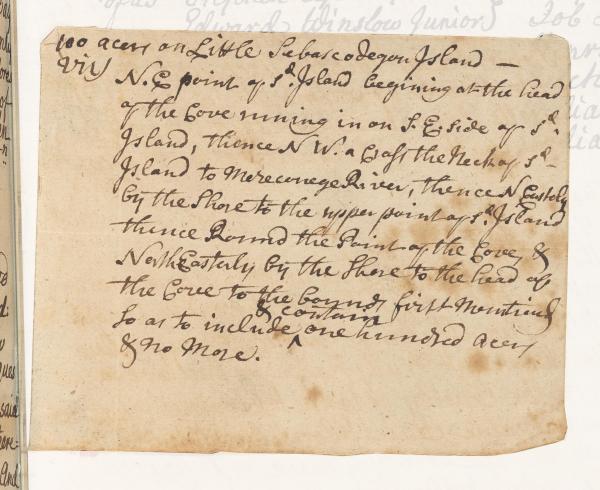 Edward Winslow Junior} Job
100 acers on Little Sebascodegon Island —
Viz
N. E point of sd. Island begining at the head
of the Cove runing in on S. E. side of sd.
Island, thence N W. a Cross the Neck of sd-
Island to Merecunege River, thence N. Easterly
by the Shore to the upper point of sd. Island
thence Round the Point of the Cove, &
North Easterly by the Shore to the head of
the Cove to the bounds first Mentiond
& contain
So as to include ^ one hundred acers
& No More.